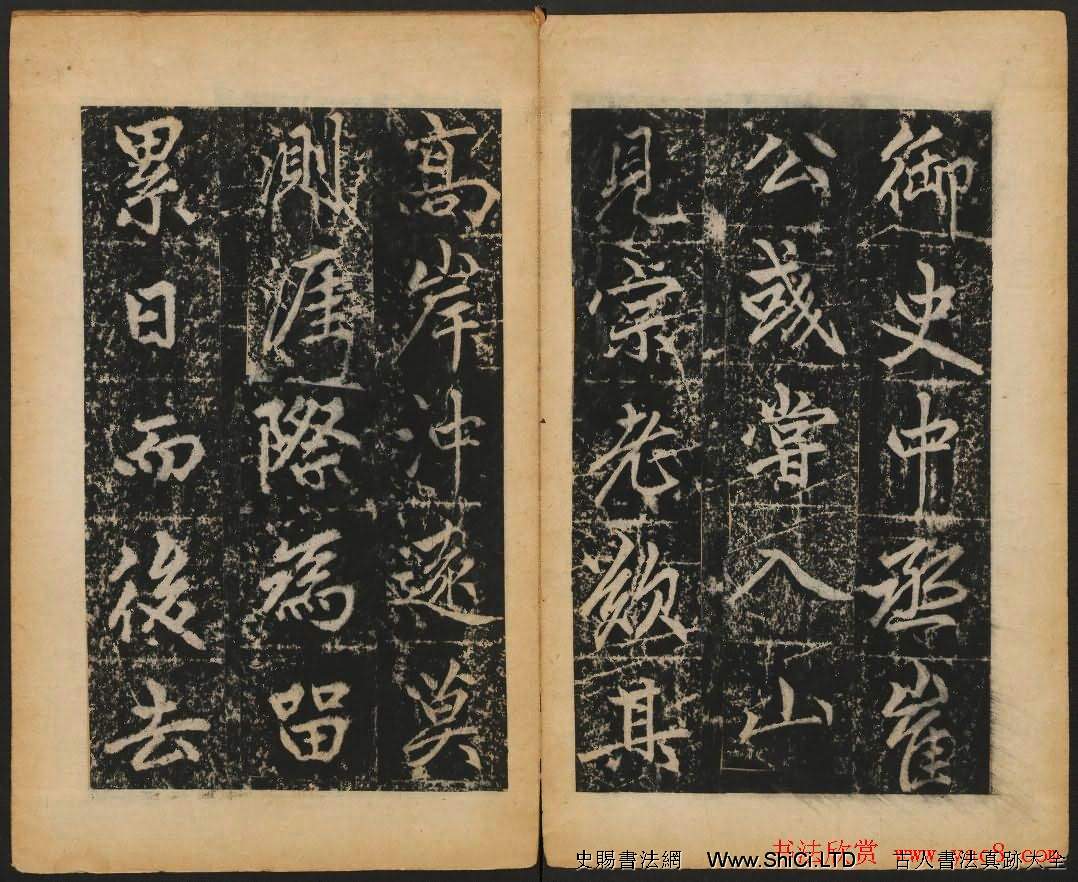 御史中丞崔
公彧嘗入山
見宗老歎其
高岸沖遠莫
測涯際為留
累日而後去
书法欣赏 www.yac8.com
史賜書法網 Www.ShiCi.LTD 古人書法真跡大全